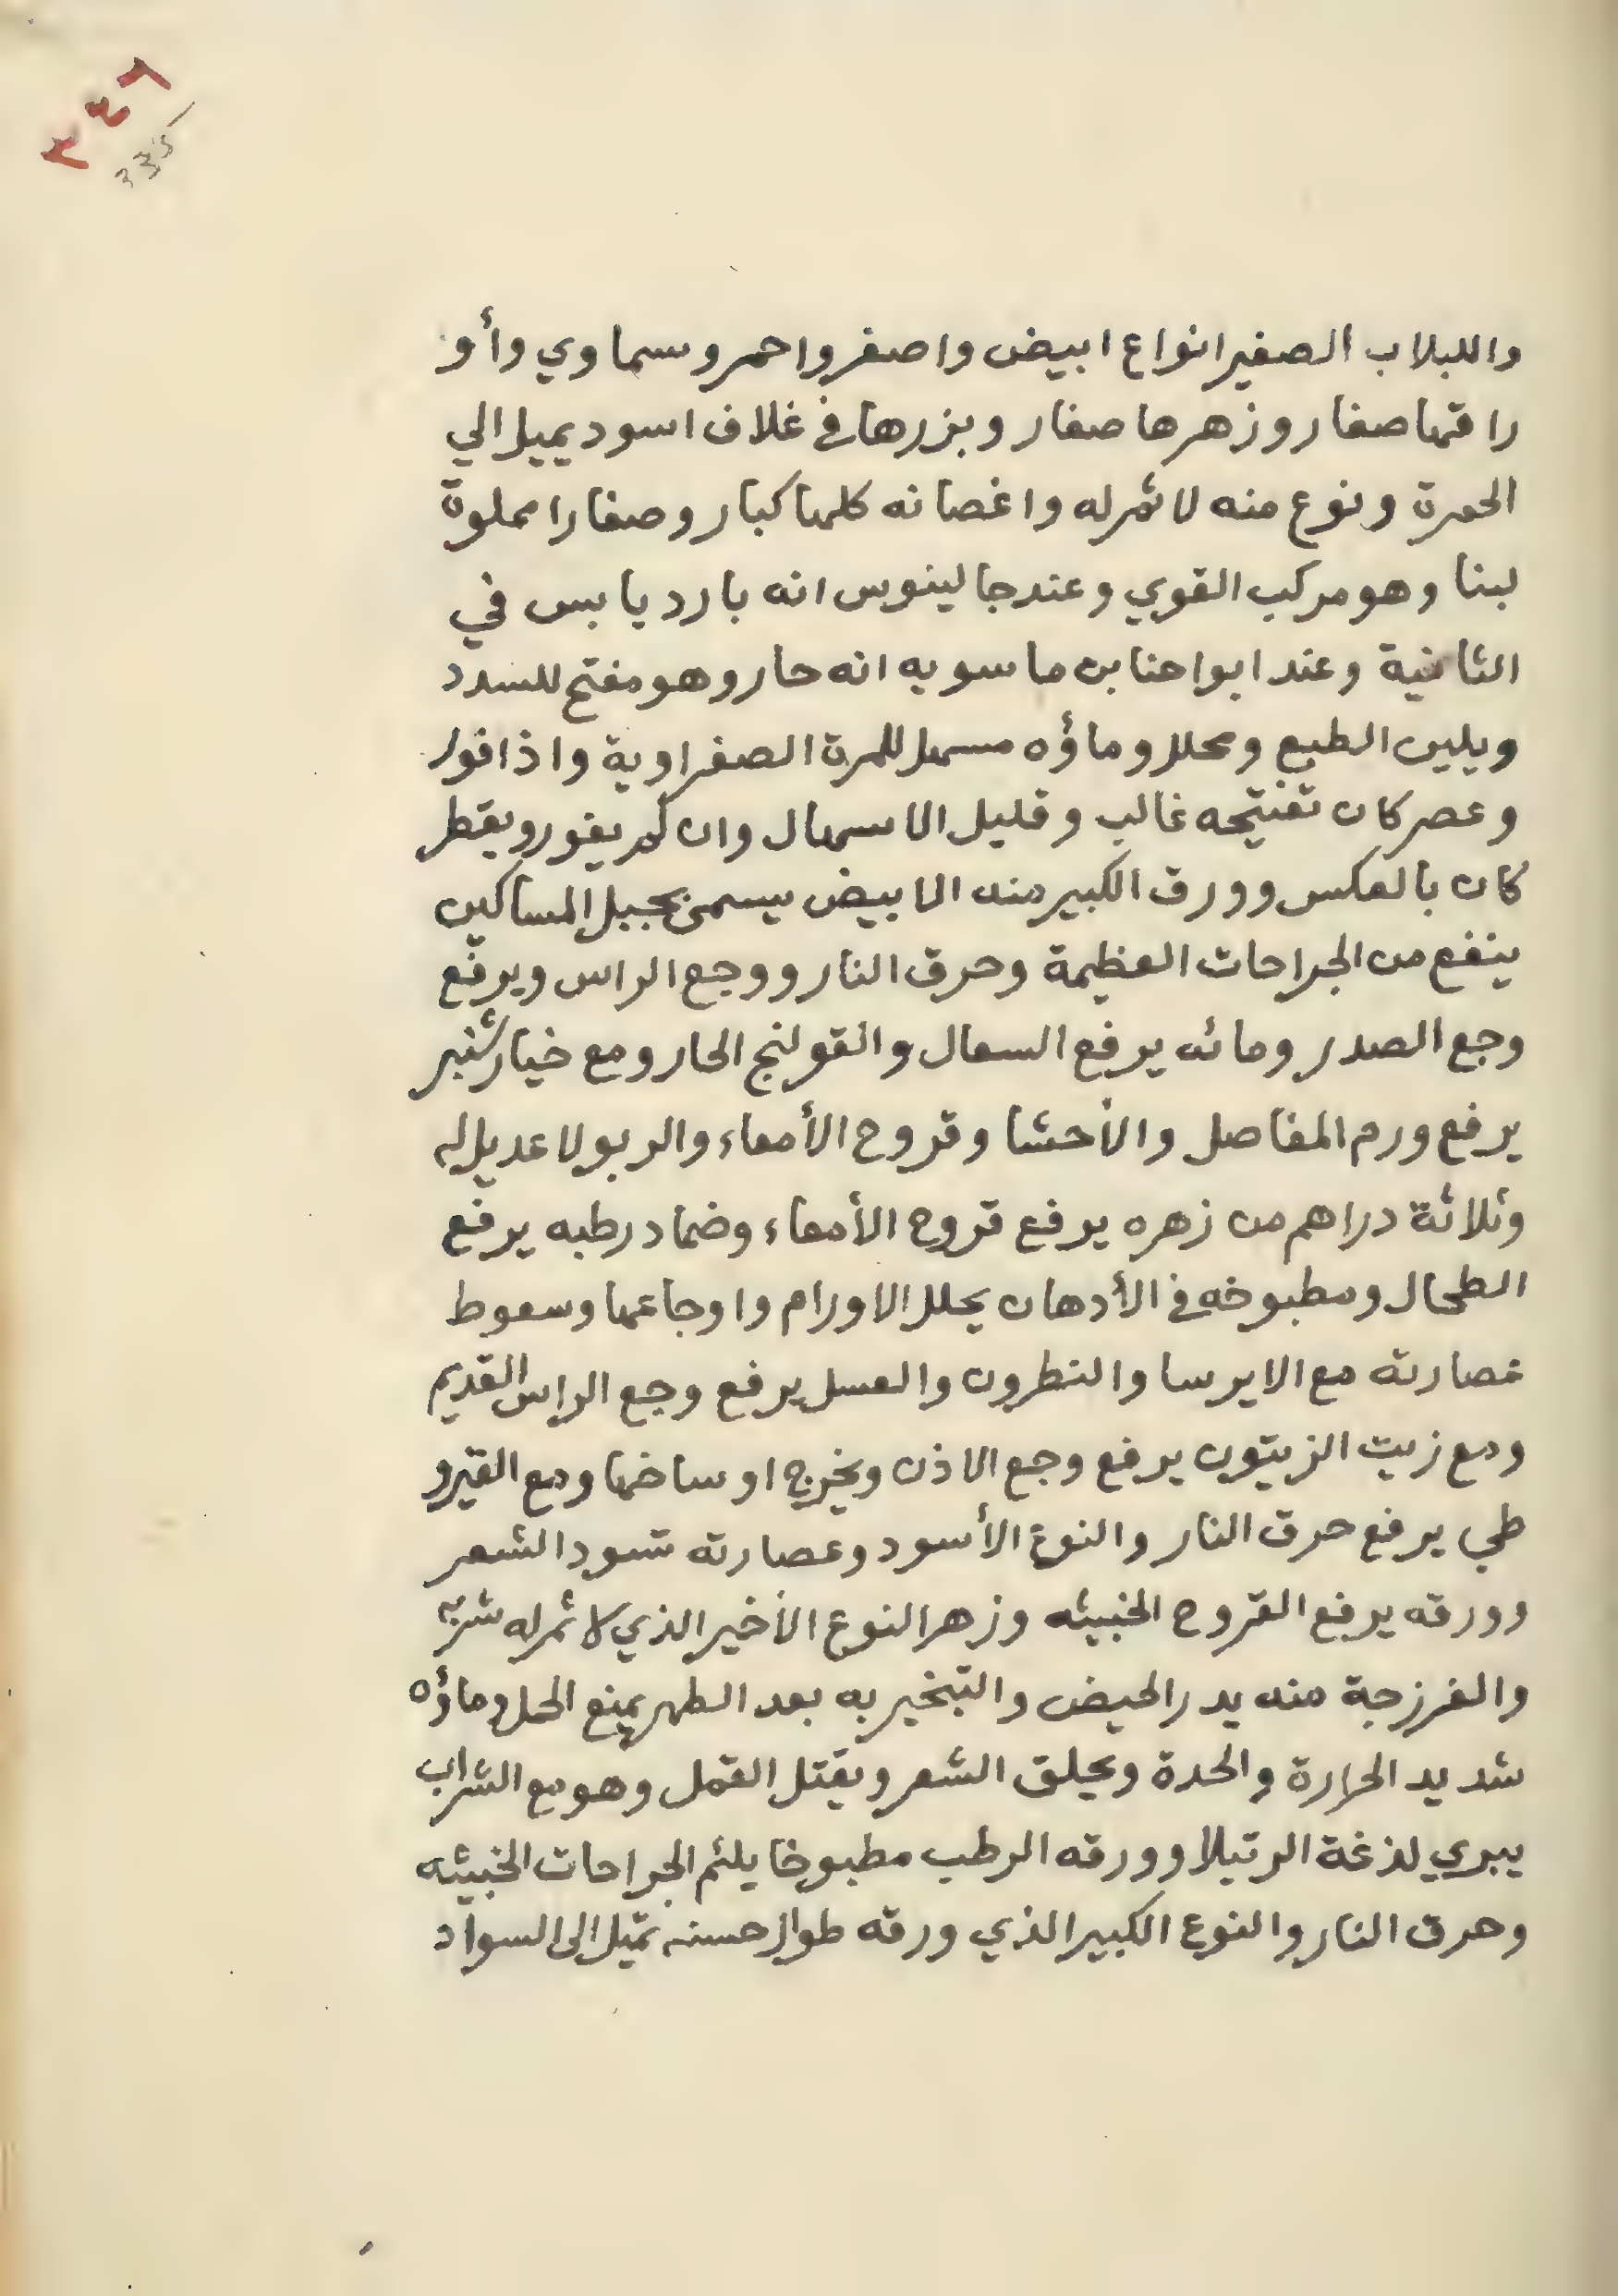 ٣٤٦
335
واللبلاب الصغير انواع ابيض واصفر واحمر وسماوي وأو
راقها صغار وزهرها صغار وبزرها في غلاف اسود يميل الي
الحمرة ونوع منه لا ثمر له واغصانه كلها كبار وصغارا مملوة
لبنا وهو مركب القوي وعند جالينوس انه بارد يابس في
الثانية وعند ابوا حنا بن ماسويه انه حار وهو مفتح للسدد
ويلين الطبع ومحلل وماؤه مسهل للمرة الصفراوية واذا فور
وعصر كان تفتيحه غالب وقليل الاسهال وان لم يفور ويقطر
كان بالعكس وورق الكبير منه الابيض يسمى بحبل المساكين
ينفع من الجراحات العظيمة وحرق النار ووجع الراس ويرفع
وجع الصدر ومائه يرفع السعال والقولنج الحار ومع خيار شنبر
يرفع ورم المفاصل والأحشا وقروح الأمعاء والربو لا عديل له
وثلاثة دراهم من زهره يرفع قروح الأمعاء وضماد رطبه يرفع
الطحال ومطبوخه في الأدهان يحلل الاورام واوجاعها وسعوط
عصارته مع الايرسا والنطرون والعسل يرفع وجع الراس القديم
ومع زيت الزيتون يرفع وجع الاذن ويخرج اوساخها ومع القيرو
طي يرفع حرق النار والنوع الأسود وعصارته تسود الشعر
وورقه يرفع القروح الخبيثه وزهر النوع الأخير الذي لا ثمر له شربه
والفرزجة منه يدر الحيض والتبخير به بعد الطهر يمنع الحمل وماؤه
شديد الحرارة والحدة ويحلق الشعر ويقتل القمل وهو مع الشراب
يبري لذغة الرتيلا وورقه الرطب مطبوخا يلئم الجراحات الخبيثه
وحرق النار والنوع الكبير الذي ورقه طوال حسنه تميل الى السواد